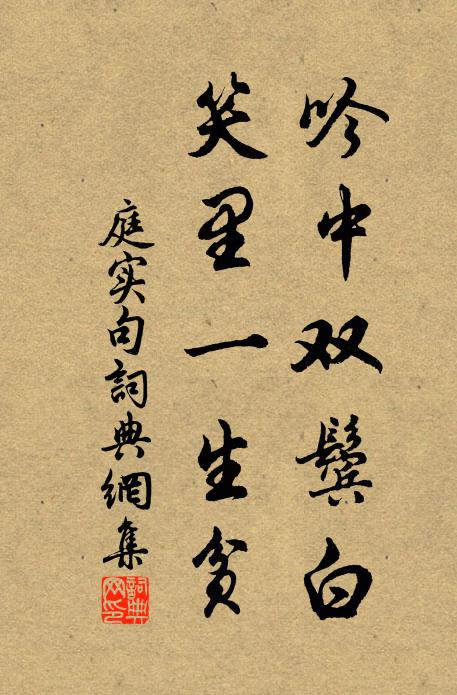 吟中双鬓白
笑里一生贫
庭实句詞典網集
詞典网印